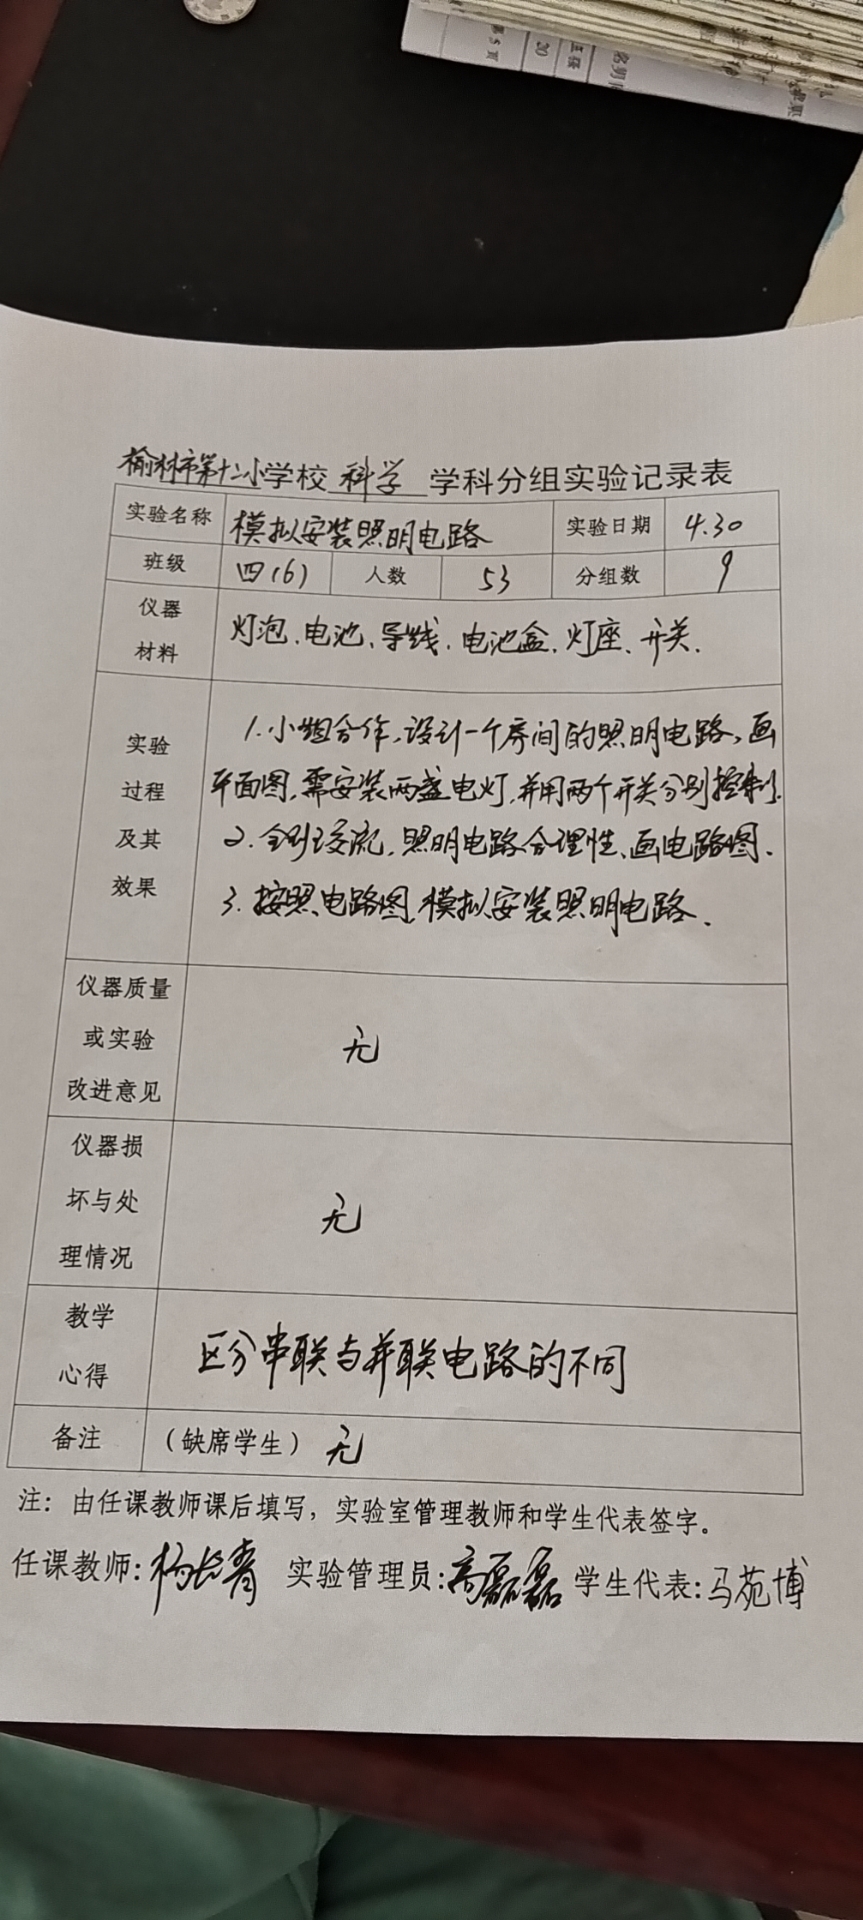 第5页
20
榆林市第十二小学校 科学 学科分组实验记录表
实验名称 模拟安装照明电路 实验日期 4.30
班级 四(6) 人数 53 分组数 9
仪器
材料
灯泡、电池、导线、电池盒、灯座、开关.
实验
过程
及其
效果
1.小组合作,设计一个房间的照明电路,画
平面图,需安装两盏电灯,并用两个开关分别控制.
2.全班交流,照明电路合理性、画电路图.
3.按照电路图,模拟安装照明电路.
仪器质量
或实验
改进意见
无
仪器损
坏与处
理情况
无
教学
心得
区分串联与并联电路的不同
备注 (缺席学生) 无
注:由任课教师课后填写,实验室管理教师和学生代表签字。
任课教师:杨长青 实验管理员:高磊磊 学生代表:马苑博